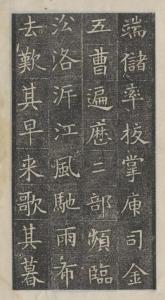 端儲率敀掌庫司金
五曹遍歷二部頻臨
㳂洛沂江風馳雨布
去歎其早来歌其暮